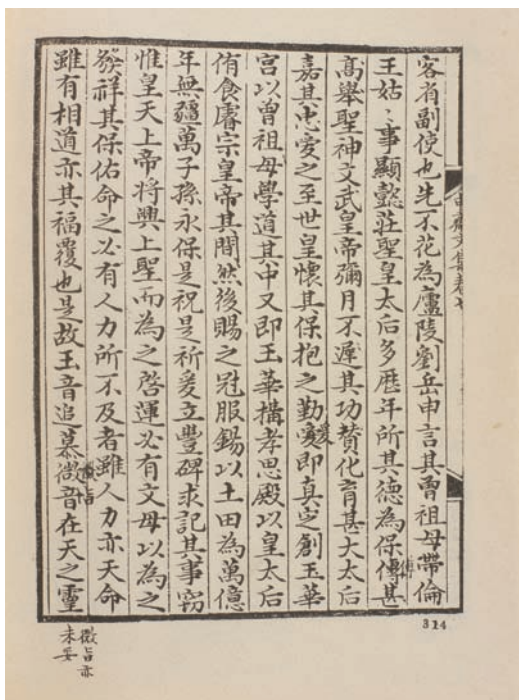 客省副使也先不花為廬陵劉岳申言其曾祖母帶倫
王姑〻事顯懿莊聖皇太后多歷年所其德為保傅甚
高舉聖神文武皇帝彌月不遲其功贊化育甚大太后
嘉其忠愛之至世皇懷其保抱之勤爰即真定創玉華
宮以曾祖母學道其中又即玉華構孝思殿以皇太后
侑食睿宗皇帝其間然後賜之冠服錫以土田為萬億
年無疆萬子孫永保是祝是祈爰立豐碑求記其事竊
惟皇天上帝將興上聖而為之啓運必有文母以為之
發祥其保佑命之必有人力所不及者雖人力亦天命
雖有相道亦其福覆也是故玉音追慕微音在天之靈
傅
爰
微旨亦
未妥
314